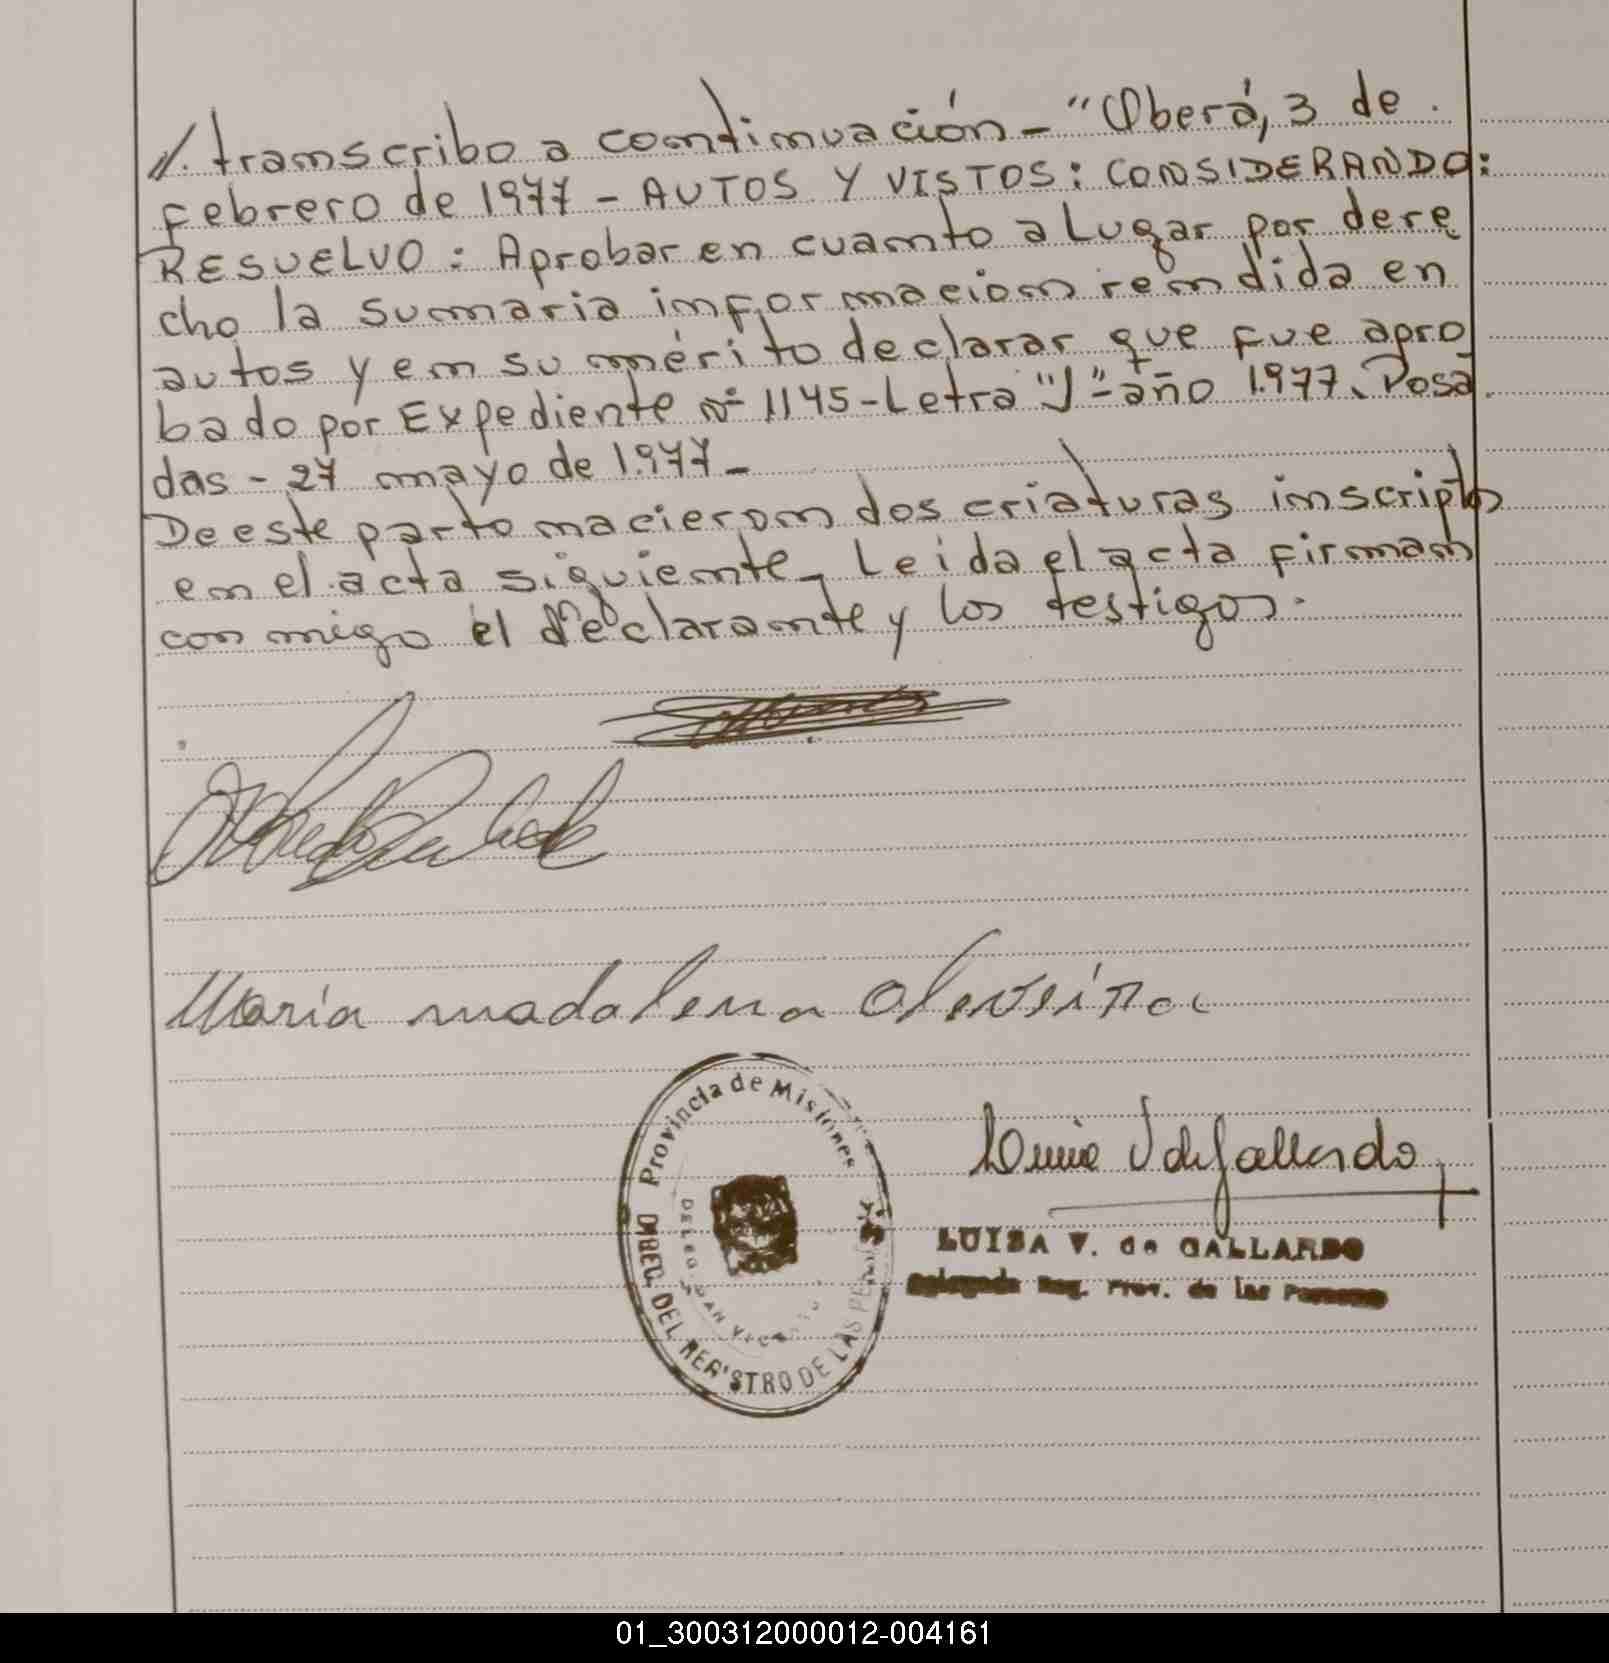 //. transcribo a continuación - "Oberá, 3 de
Febrero de 1977 - AUTOS Y VISTOS: CONSIDERANDO:
RESUELVO: Aprobar en cuanto a Lugar por dere
cho la sumaria informacion rendida en
autos y en su mérito declarar que fue apro
bado por Expediente Nº 1145 - Letra "J" - año 1.977. Posa
das - 27 mayo de 1.977 -
De este parto nacieron dos criaturas inscriptos
en el acta siguiente - Leida el acta firman
conmigo el declarante y los testigos.
María madalena oliveira
Provincia de Misiones
DIREC. DEL REGISTRO DE LAS PERSONAS
DELEG. SAN VICENTE
LUISA V. de GALLARDO
Delegada Reg. Prov. de las Personas
01_300312000012-004161